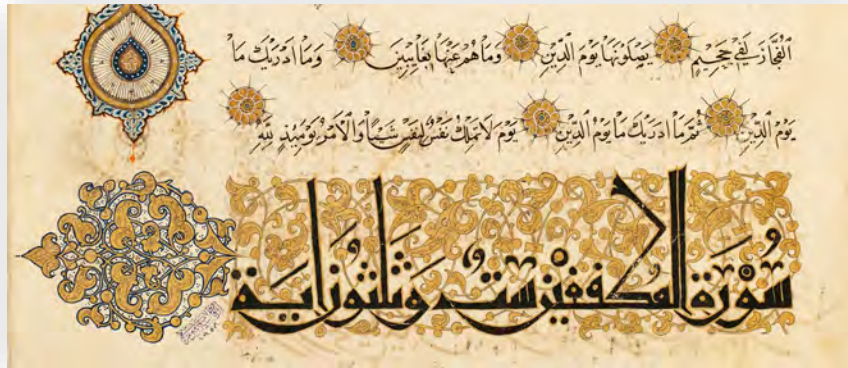 الْفُجَّارَ لَفِي جَحِيمٍ يَصْلَوْنَهَا يَوْمَ الدِّينِ وَمَا هُمْ عَنْهَا بِغَايِبِينَ وَمَا اَدْرٰيكَ مَا
يَوْمُ الدِّينِ ثُمَّ مَا اَدْرٰيكَ مَا يَوْمُ الدِّينِ يَوْمَ لَا تَمْلِكُ نَفْسٌ لِنَفْسٍ شَيْـًٔا وَالْاَمْرُ يَوْمَئِذٍ لِلّٰهِ
سُوْرَة المطففين ست وَثَلثُون اية